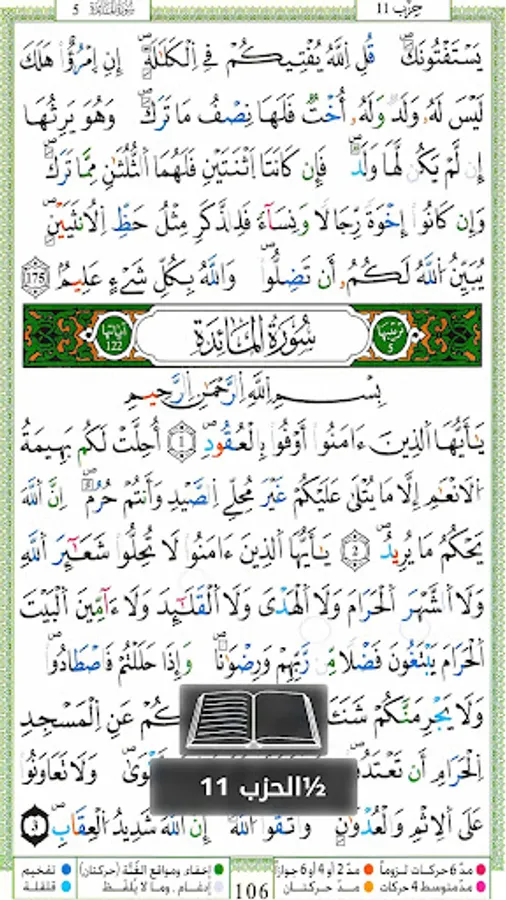 حِزْب 11
سُورَةُ المَائدَة 5
يَسْتَفْتُونَكَ قُلِ اِ۬للَّهُ يُفْتِيكُمْ فِے اِ۬لْكَلَٰلَةِ إِنِ اِ۪مْرُؤٌاْ هَلَكَ
لَيْسَ لَهُۥ وَلَدٌ وَلَهُۥٓ أُخْتٌ فَلَهَا نِصْفُ مَا تَرَكَ وَهُوَ يَرِثُهَا
إِن لَّمْ يَكُن لَّهَا وَلَدٌ فَإِن كَانَتَا اَ۪ثْنَتَيْنِ فَلَهُمَا اَ۬لثُّلُثَٰنِ مِمَّا تَرَكَ
وَإِن كَانُوٓاْ إِخْوَةً رِّجَالًا وَنِسَآءً فَلِلذَّكَرِ مِثْلُ حَظِّ اِ۬لُانثَيَيْنِ
يُبَيِّنُ اُ۬للَّهُ لَكُمُۥٓ أَن تَضِلُّواْ وَاللَّهُ بِكُلِّ شَےْءٍ عَلِيمٌ 175
ترتيبها 5
سُورَةُ المَائدَة
آياتها 122
بِسْمِ اِ۬للَّهِ اِ۬لرَّحْمَٰنِ اِ۬لرَّحِيمِ
يَٰٓأَيُّهَا اَ۬لذِينَ ءَامَنُوٓاْ أَوْفُواْ بِالْعُقُودِ 1 أُحِلَّتْ لَكُم بَهِيمَةُ
اُ۬لَانْعَٰمِ إِلَّا مَا يُتْلَىٰ عَلَيْكُمْ غَيْرَ مُحِلِّے اِ۬لصَّيْدِ وَأَنتُمْ حُرُمٌ إِنَّ اَ۬للَّهَ
يَحْكُمُ مَا يُرِيدُ 2 يَٰٓأَيُّهَا اَ۬لذِينَ ءَامَنُواْ لَا تُحِلُّواْ شَعَٰٓئِرَ اَ۬للَّهِ
وَلَا اَ۬لشَّهْرَ اَ۬لْحَرَامَ وَلَا اَ۬لْهَدْىَ وَلَا اَ۬لْقَلَٰٓئِدَ وَلَآ ءَآمِّينَ اَ۬لْبَيْتَ
اَ۬لْحَرَامَ يَبْتَغُونَ فَضْلًا مِّن رَّبِّهِمْ وَرِضْوَٰنًا وَإِذَا حَلَلْتُمْ فَاصْطَادُواْ
وَلَا يَجْرِمَنَّكُمْ شَنَـَٔا كُمْ عَنِ اِ۬لْمَسْجِدِ
اِ۬لْحَرَامِ أَن تَعْتَدُواْ وَلَا تَعَاوَنُواْ
عَلَى اَ۬لِاثْمِ وَالْعُدْوَٰنِ وَاتَّقُواْ اُ۬للَّهَ إِنَّ اَ۬للَّهَ شَدِيدُ اُ۬لْعِقَابِ 3
½الحزب 11
مدّ 6 حركات لزوماً مدّ 2 أو 4 أو 6 جوازاً إخفاء ومواقع الغُنَّة (حركتان) تفخيم
مدّ متوسط 4 حركات مدّ حركتان إدغام . وما لا يُلفَظ قلقلة
106